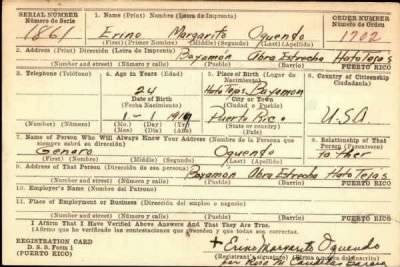 SERIAL NUMBER 1. Name (Print) Nombre (Letra de Imprenta) ORDER NUMBER
Número de Serie Número de Orden
1861 Erino Margarito Oquendo 1702
(First) (Primer Nombre) (Middle) (Segundo) (Last) (Apellido)
2. Address (Print) Dirección (Letra de Imprenta)
Bayamón Abra Estrecha Hato Tejas
(Number and street) (Número y calle) (Town) (Pueblo) PUERTO RICO
3. Telephone (Teléfono) 4. Age in Years (Edad) 5. Place of Birth (Lugar de Nacimiento) 6. Country of Citizenship (Ciudadanía)
24 Hato Tejas Bayamon
Date of Birth (Fecha Nacimiento) City or Town (Ciudad o Pueblo)
Puerto Rico U.S.A
(Mo.) (Day) (Yr.) State or country)
(Mes) (Día) (Año)
7. Name of Person Who Will Always Know Your Address (Nombre de la Persona que siempre sabrá su dirección) 8. Relationship of That Person (Parentesco)
Genaro Oquendo father
(First) (Nombre) (Middle) (Segundo) (Last) (Apellido)
9. Address of That Person (Dirección de esta Persona)
Bayamón Abra Estrecha Hato Tejas
(Number and street) (Número y calle) (Town) (Pueblo) PUERTO RICO
10. Employer's Name (Nombre del Patrono)
11. Place of Employment or Business (Dirección del empleo o negocio)
(Number and street or) (Número y calle) (Town) (Pueblo) PUERTO RICO
I Affirm That I Have Verified Above Answers and That They Are True.
(Afirmo que he verificado las contestaciones que anteceden y que todas son ciertas.)
REGISTRATION CARD
D. S. S. Form 1
(PUERTO RICO)
+ Erino Margarito Oquendo
(Registrant's signature)
por Rosa M.